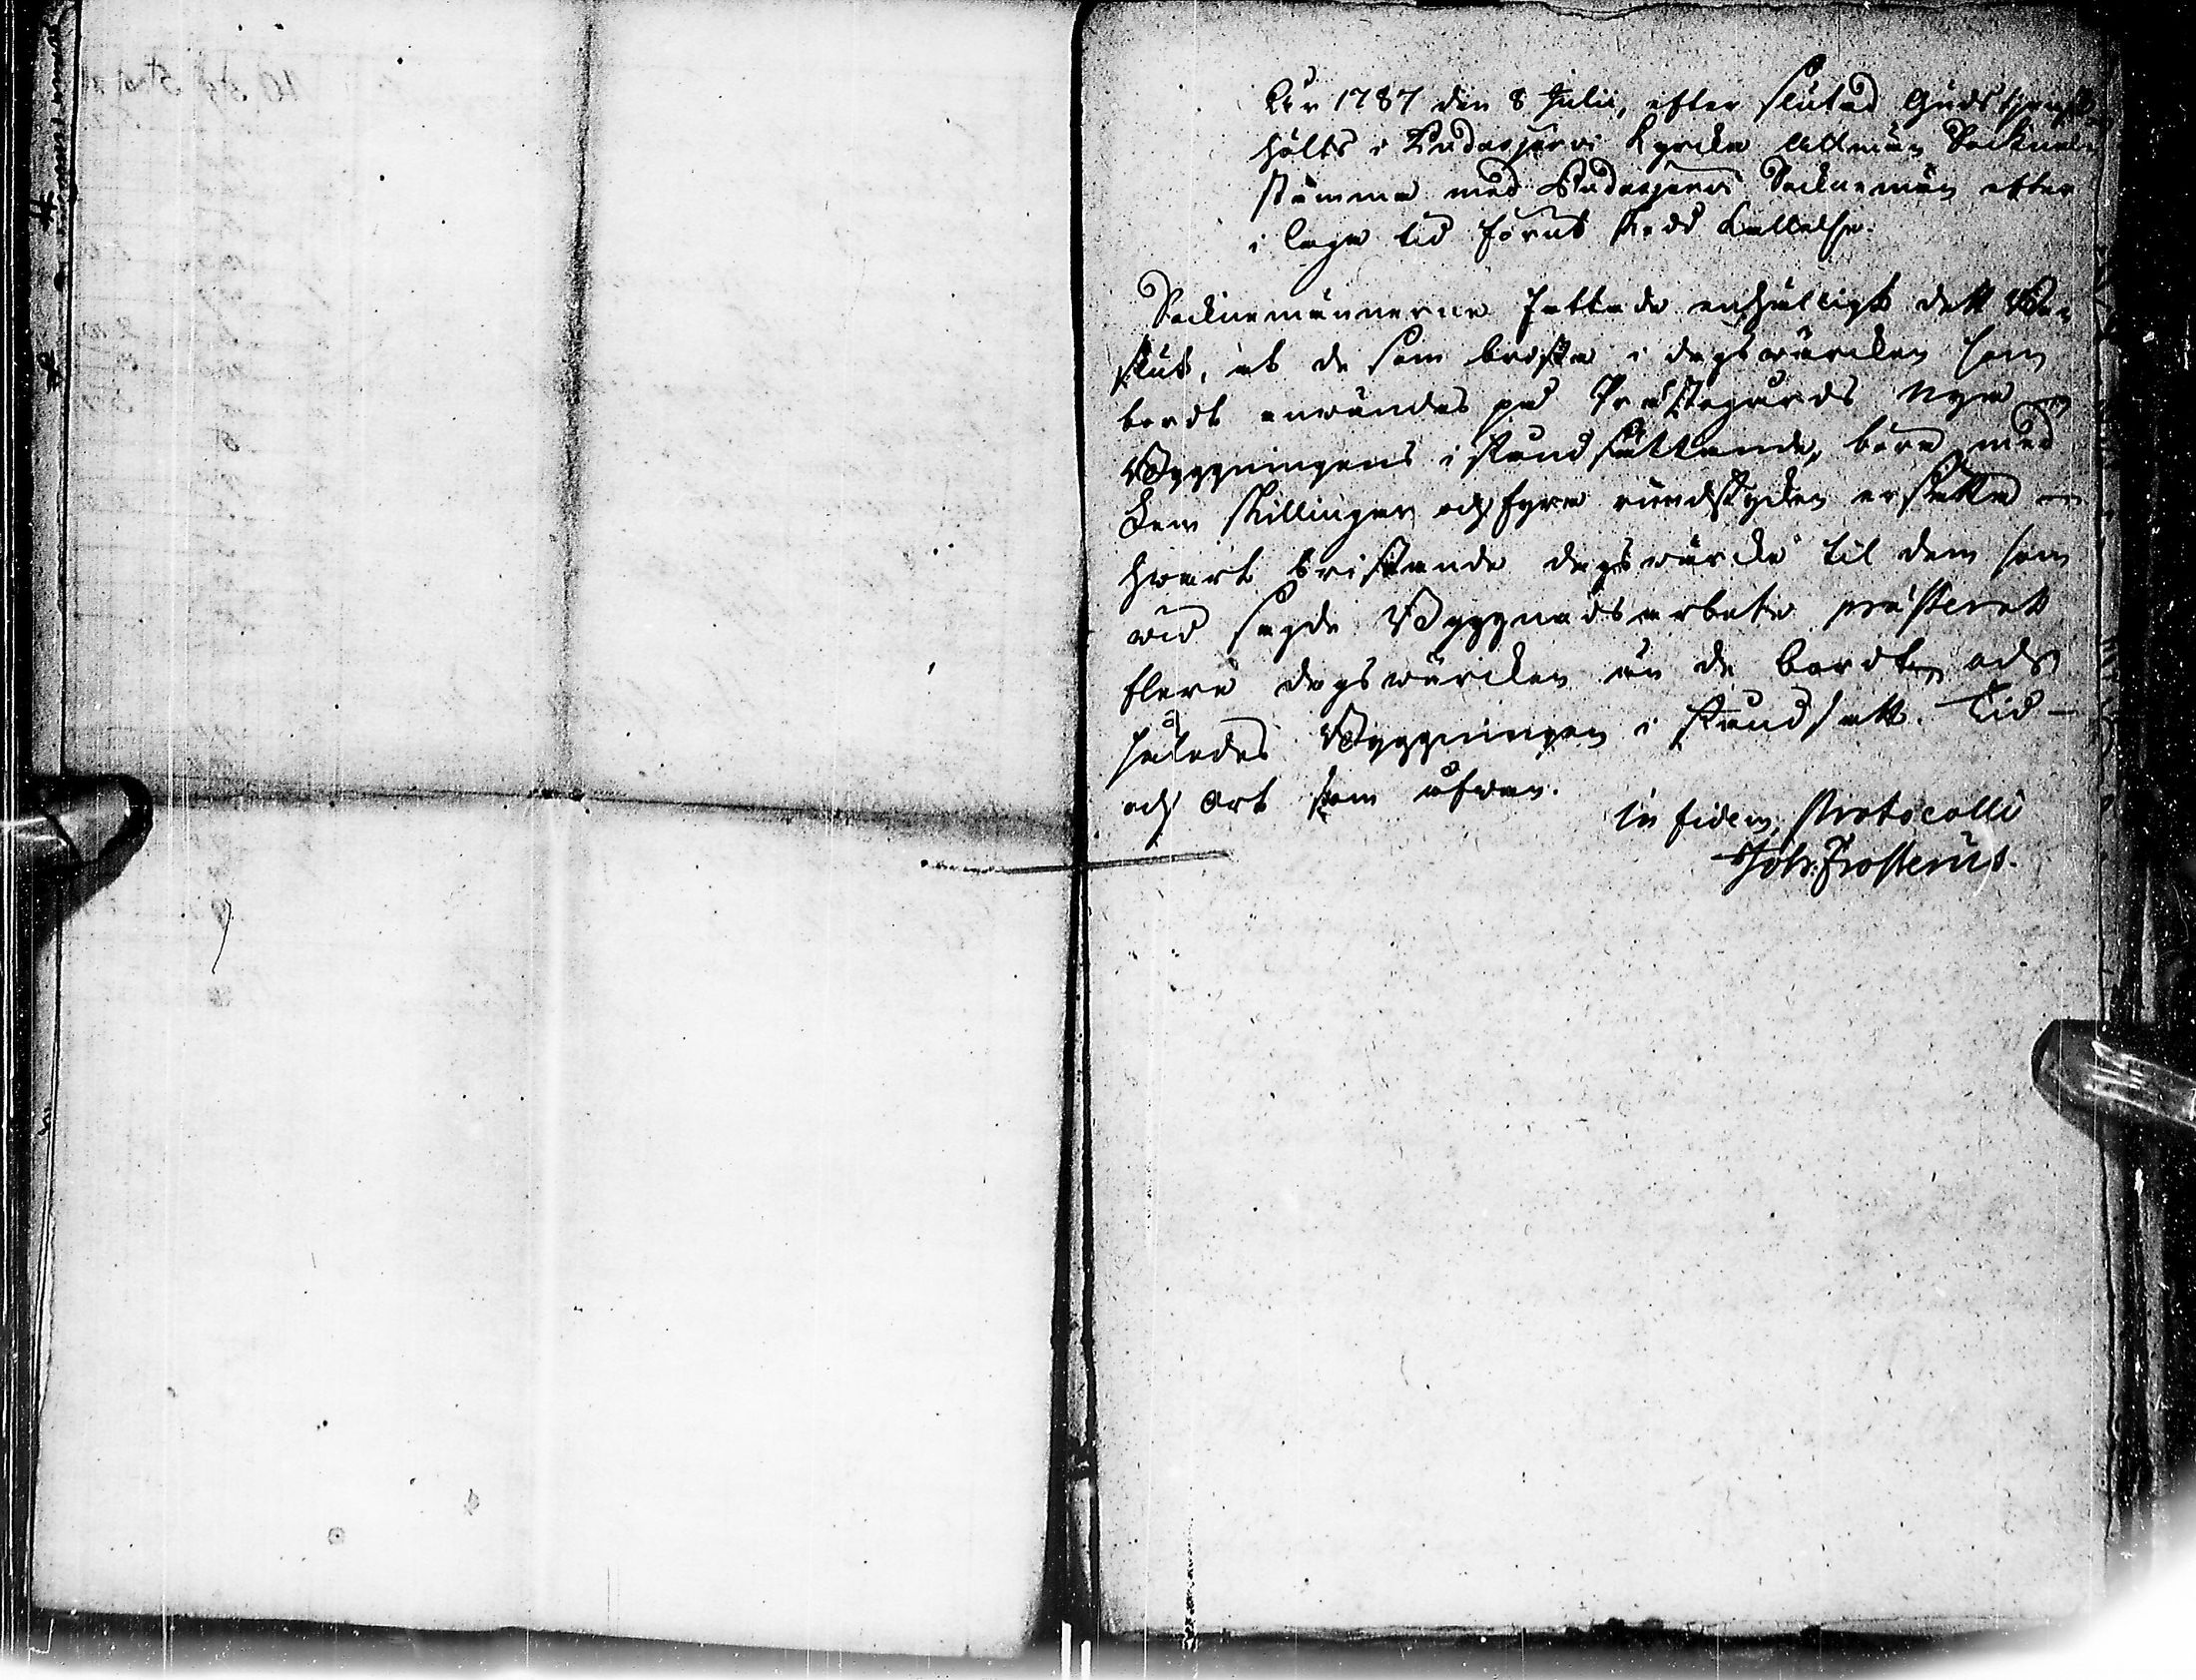 Åhr 1787 den 8 Julii, efter slutad Gudstjenst
hölts i Pudasjervi Kyrcka Allmän Sockne
stämma med Pudasjervi Socknemän efter
i laga tid förut skedd kallelse.
Socknemännerne fattade enhälligt dett Be-
slut, at de som brista i dagswärcken som
bordt anwändas på Prästegårds nya
Byggningens i stånd sättande, böra med
Fem skillingar och fyra rundstycken ersätta
hwart bristande dagswärcke til dem som
wid sagde Byggnads arbete præsterat
flere dagswärcken än de bordt, och
således Byggningen i stånd satt. Tid
och Ort som ofwan.
in fidem Protocolli
Joh: Frosterus.